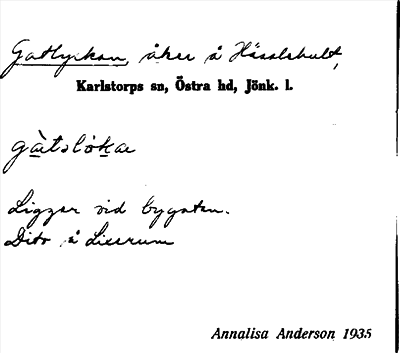 Gatlyckan, åker å Hässlehult,
Karlstorps sn, Östra hd, Jönk. l.
gàtslökae
Ligger vid bygatan.
Dito å Licerum
Annalisa Anderson 1935